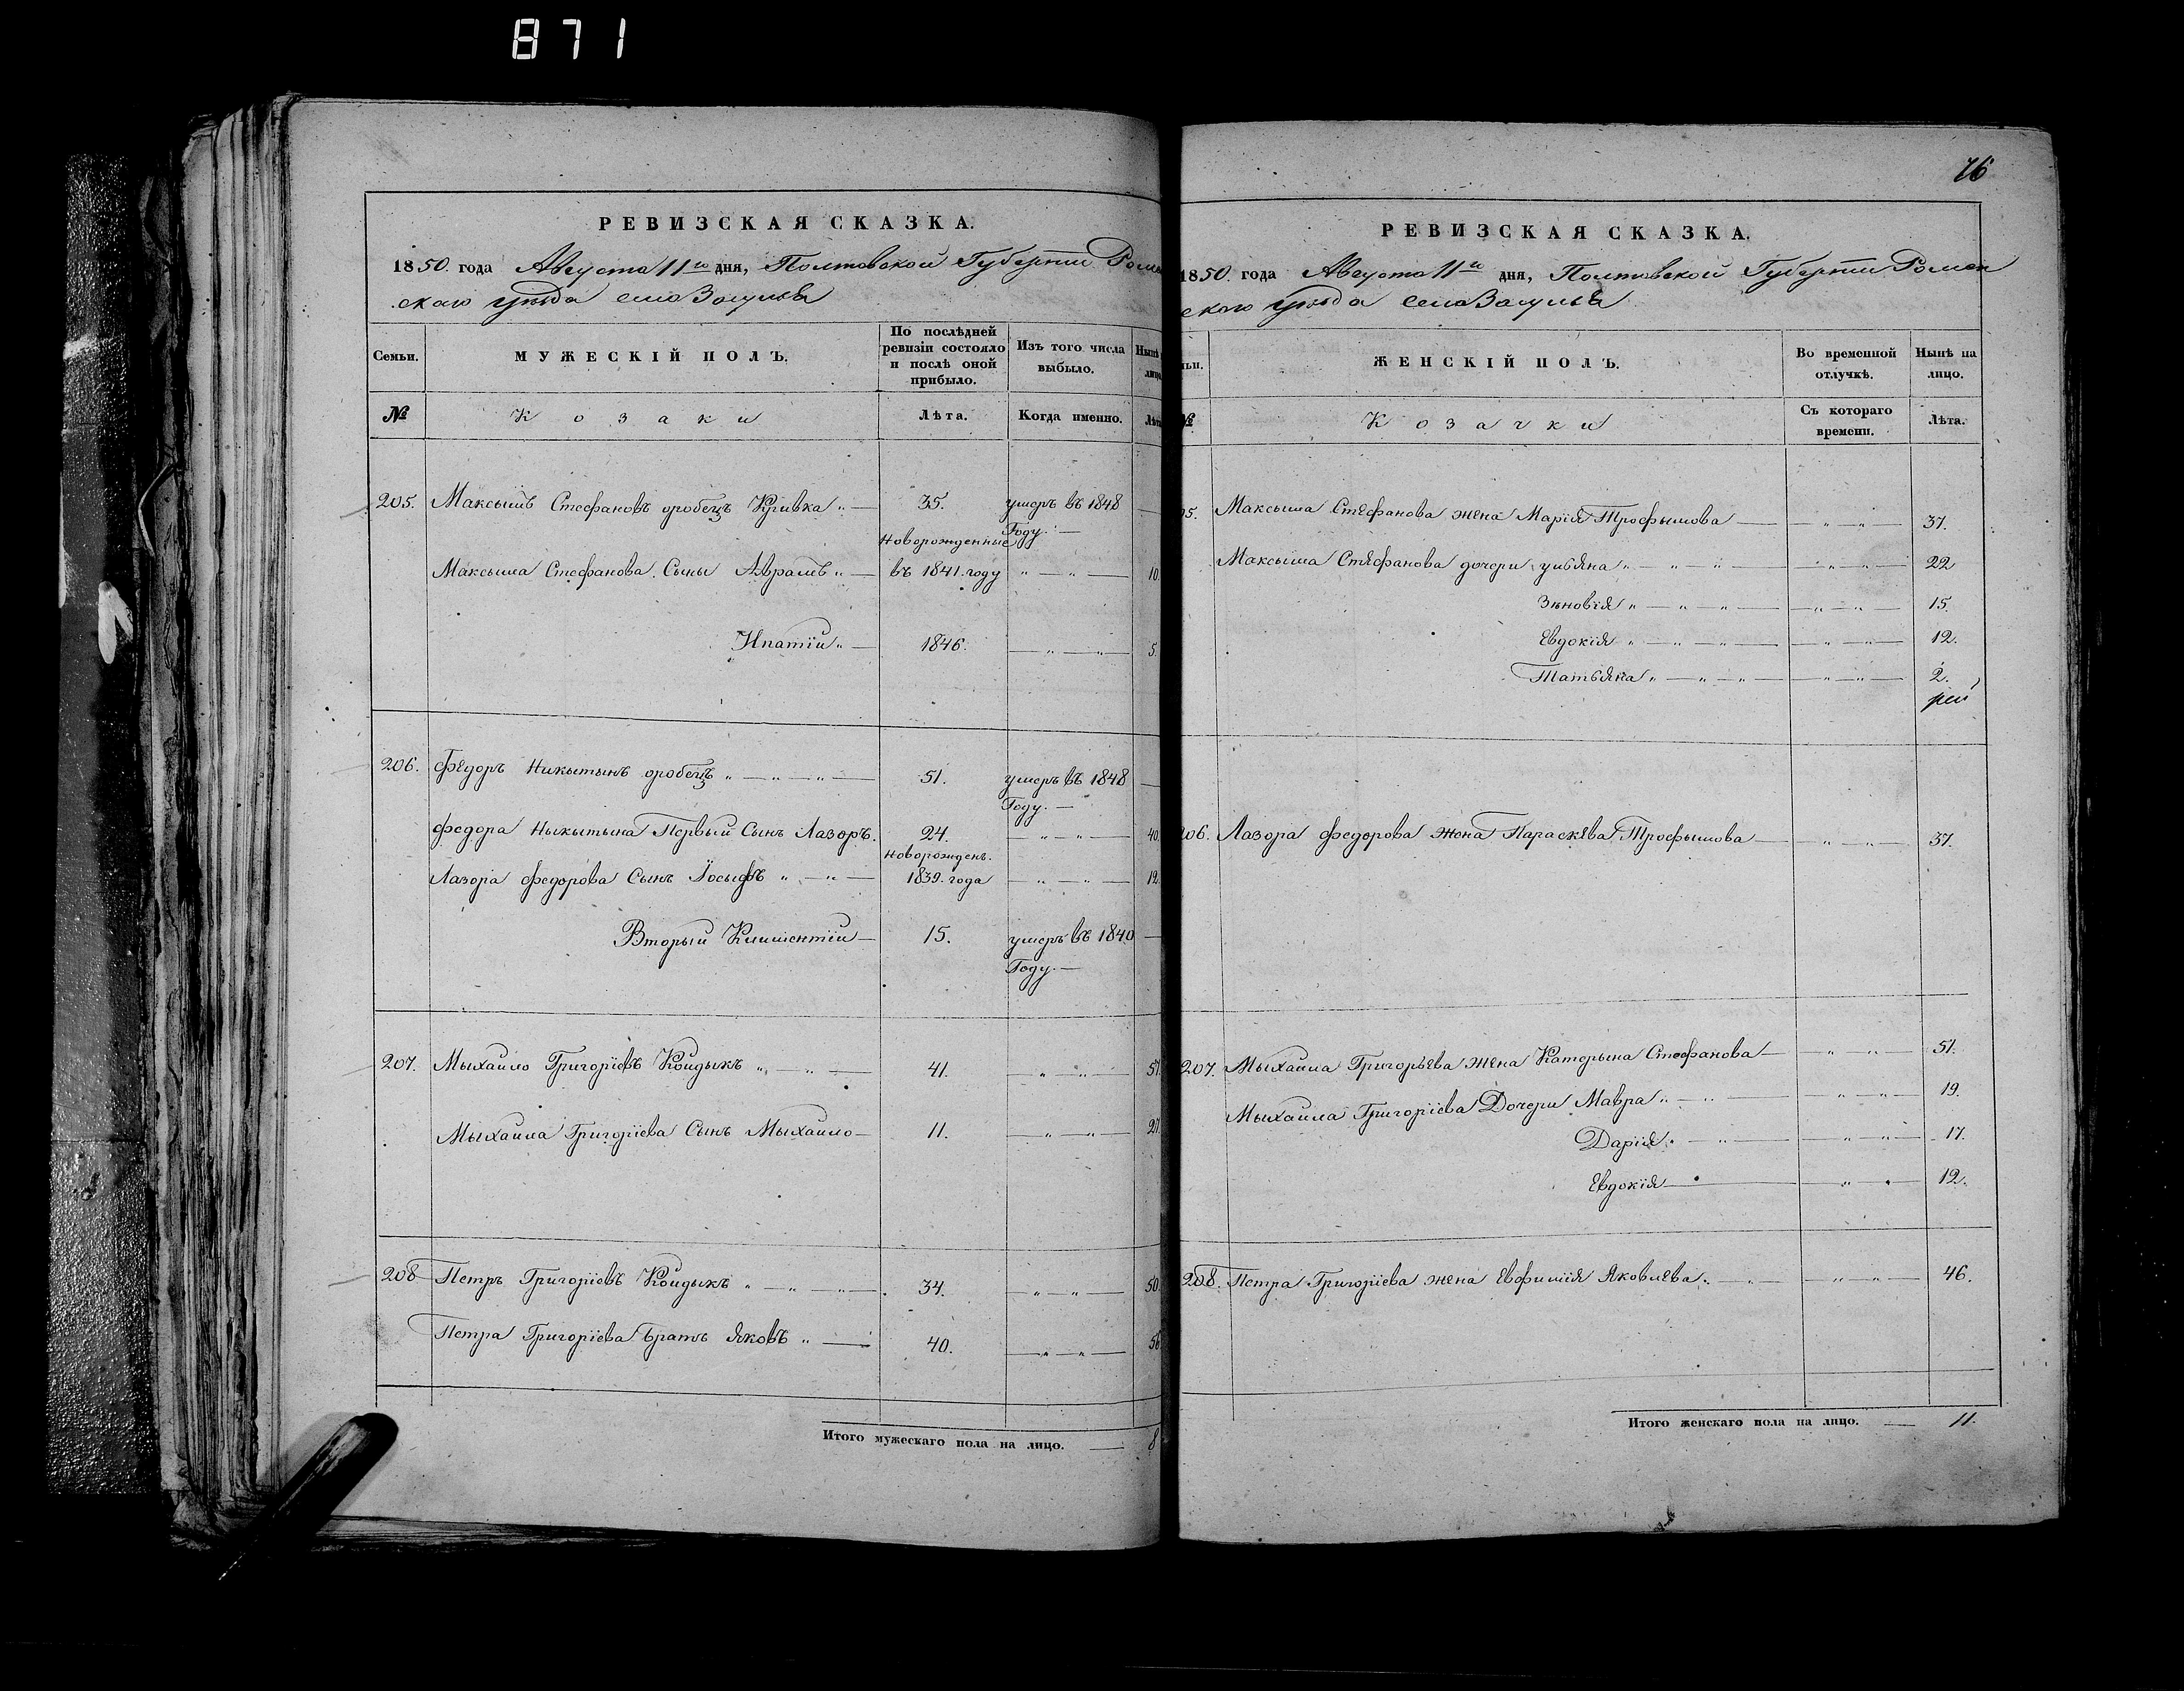 871
РЕВИЗСКАЯ СКАЗКА.
1850. года Августа 11го дня, Полтавской Губернии Ромен
скаго уѣзда села Засулья
Семьи.
МУЖЕСКІЙ ПОЛЪ.
По послѣдней
ревизіи состояло
и послѣ оной
прибыло.
Изъ того числа
выбыло.
Нынѣ
лицо
№
Козаки
Лѣта.
Когда именно.
Лѣта
205. Максымъ Стефановъ оробецъ Кривка „ — 35. умеръ въ 1848 —
Новорожденные Году. —
Максыма Стефанова Сыны Аврамъ „ — въ 1841. году „ — „ — 10.
Ипатїй „ — 1846. — „ — „ — 5.
206. Федоръ Никытынъ оробецъ „ — „ — „ — 51. умеръ въ 1848 —
Году. —
Федора Ныкытына Первый Сынъ Лазоръ. 24. — „ — „ — 40.
Новорожден.
Лазора Федорова Сынъ Їосыфъ „ — „ — 1839. года — „ — „ — 12.
Вторый Климентїй — 15. умеръ въ 1840 —
Году. —
207. Мыхайло Григорїевъ Койдыкъ „ — „ — 41. — „ — „ — 57.
Мыхайла Григорїева Сынъ Мыхайло — 11. — „ — „ — 27.
208 Петръ Григорїевъ Койдыкъ „ — „ — „ — 34. — „ — „ — 50.
Петра Григорїева братъ Яковъ „ — 40. — „ — „ — 56.
Итого мужескаго пола на лицо. — 8
76
РЕВИЗСКАЯ СКАЗКА.
1850. года Августа 11го дня, Полтавской Губерніи Ромен
скаго уѣзда села Засулья
ьи.
ЖЕНСКІЙ ПОЛЪ.
Во временной
отлучкѣ.
Нынѣ на
лицо.
№
Козачки
Съ котораго
времени.
Лѣта.
05. Максыма Стефанова жена Марїя Трофымова — „ „ — 37.
Максыма Стефанова дочери улья́на „ — „ — „ — — „ — „ — 22
Зѣновїя „ — „ — „ — — „ — „ — 15.
Евдокїя „ — „ — „ — — „ — „ — 12.
Татьяна „ — „ — „ — — „ — „ — 2.
206. Лазора Федорова жена Параскева Трофымова — — „ — „ — 37.
207. Мыхайла Григорьева жена Катерына Стефанова — — „ „ — 51.
Мыхайла Григорїева Дочери Мавра „ — „ — — „ — „ — 19.
Дарїя „ — „ — — „ — „ — 17.
Евдокїя — — „ — 12.
208. Петра Григорїева жена Евфимїя Яковлева „ — „ — „ — 46.
Итого женскаго пола на лицо. — 11.